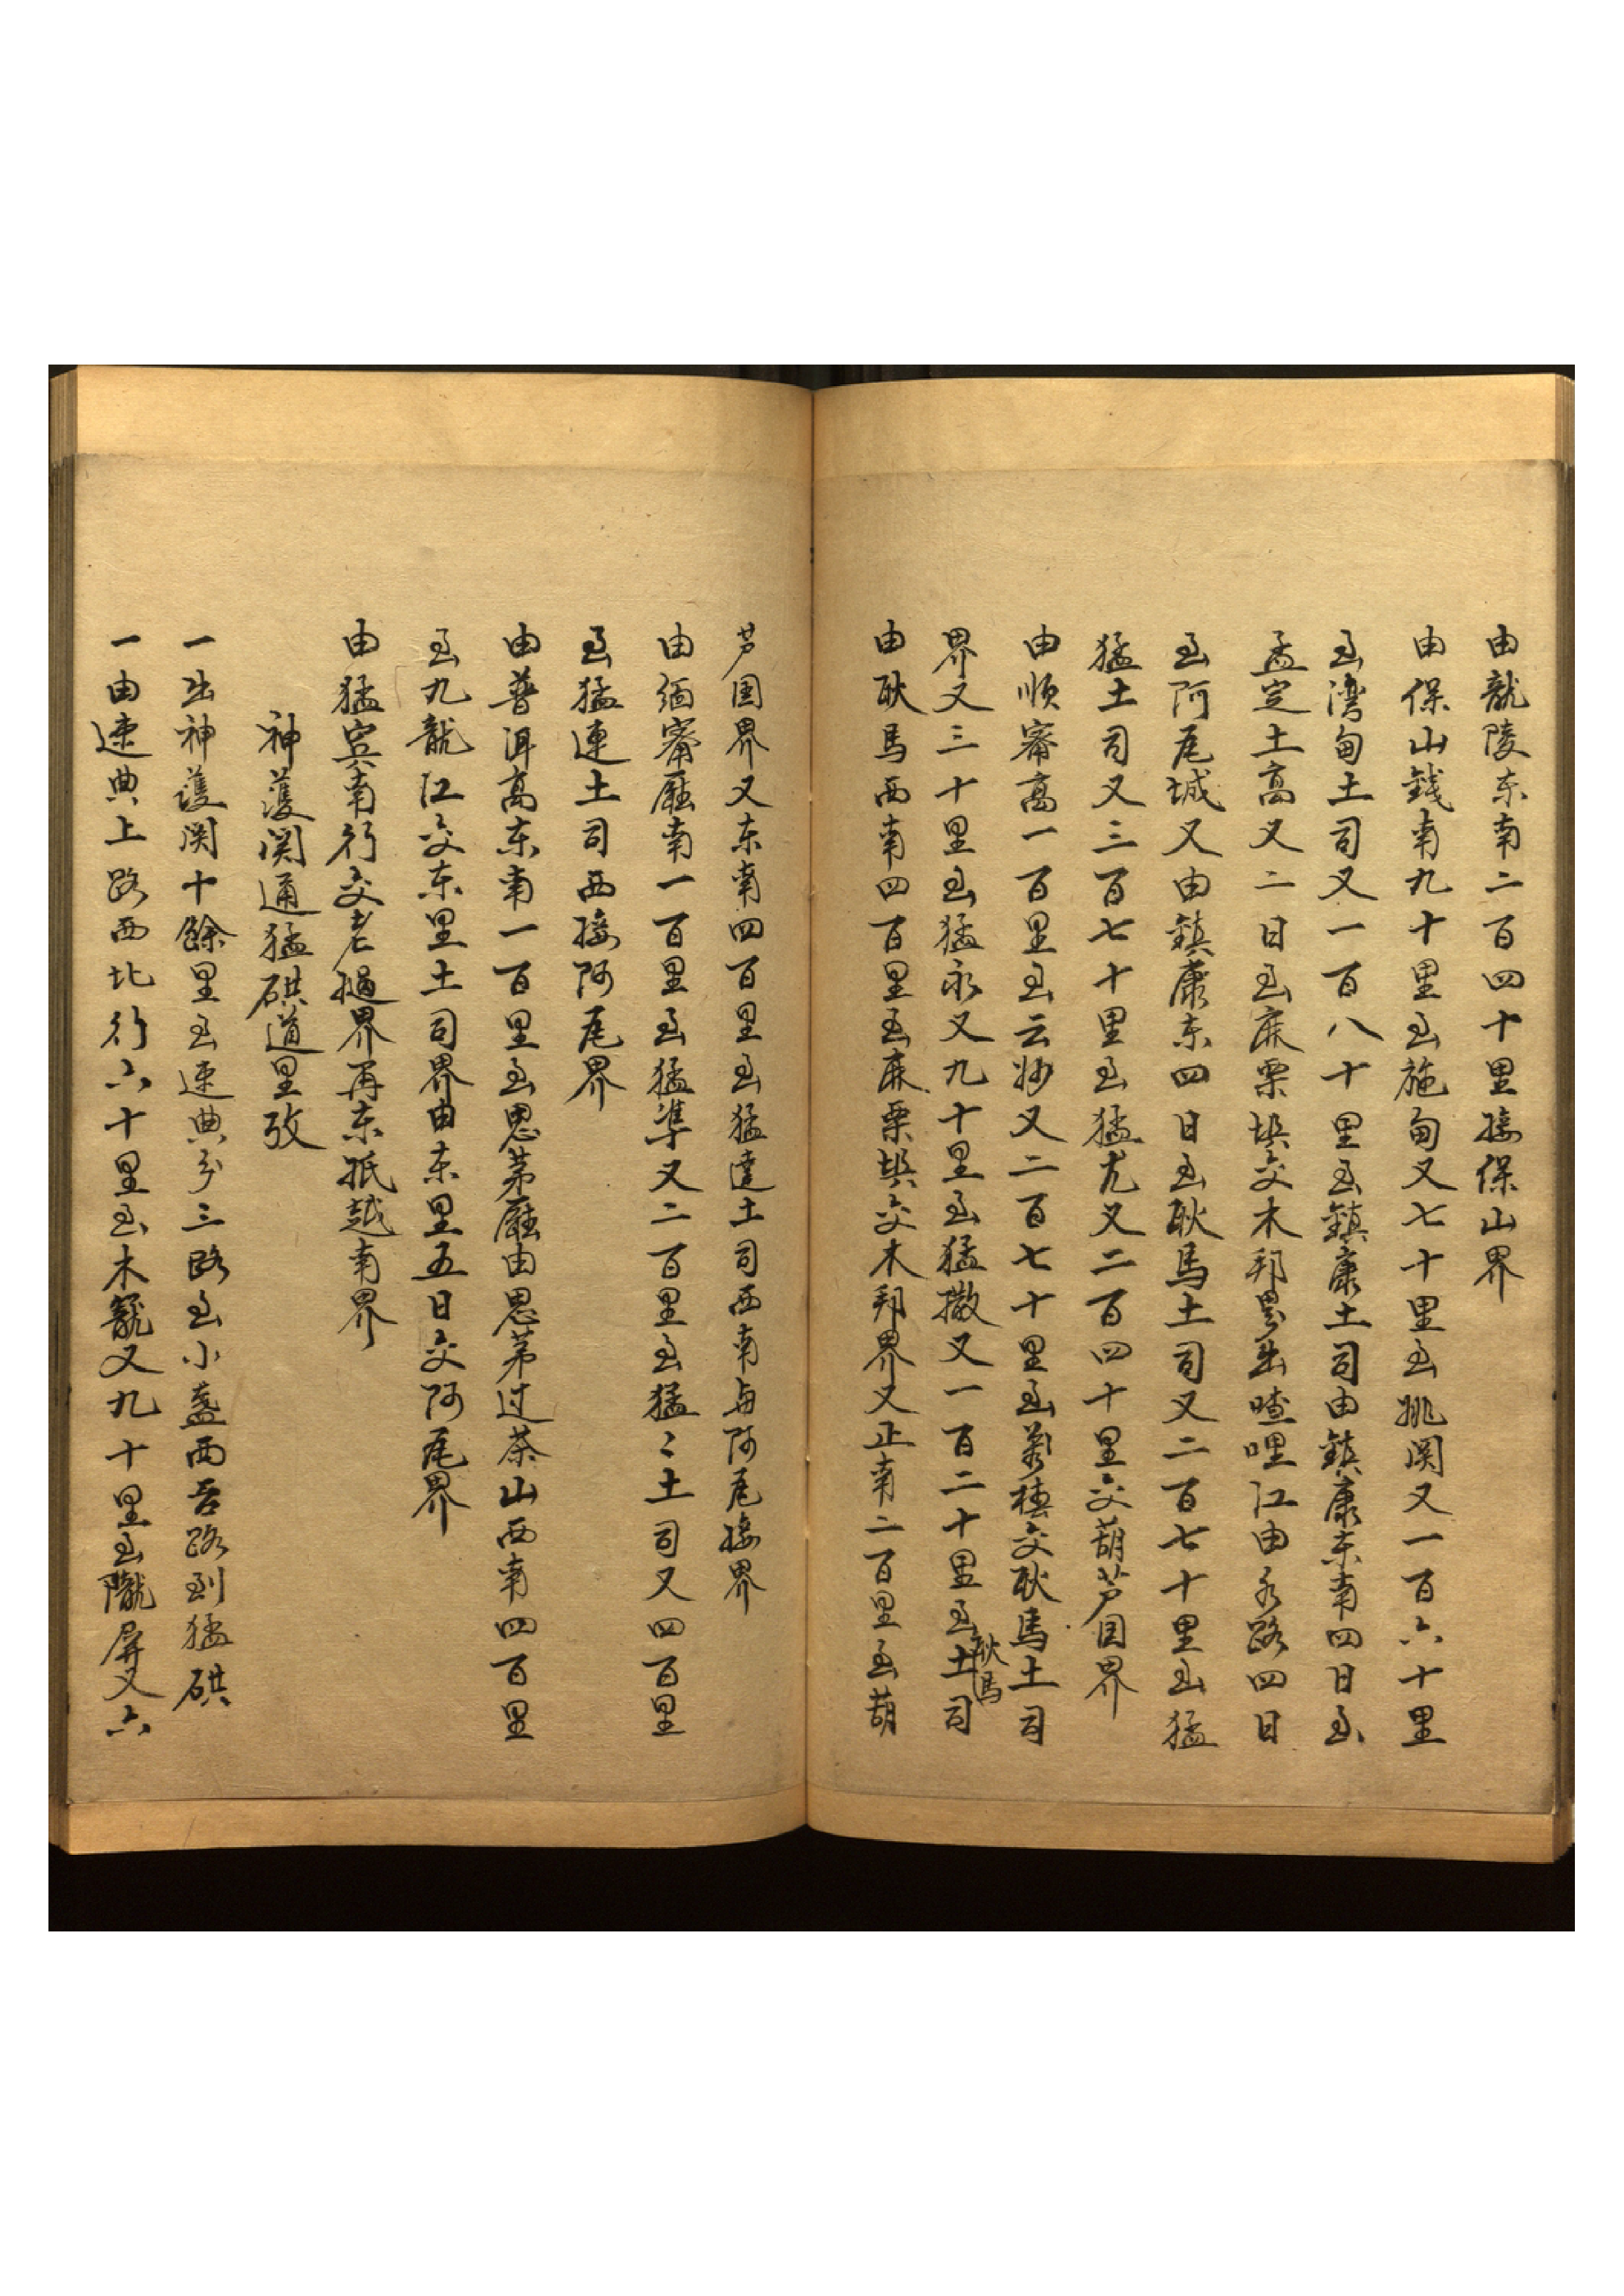 由龍陵东南二百四十里接保山界
由保山錢南九十里至施甸又七十里至姚関又一百六十里
至湾甸土司又一百八十里至鎮康土司由鎮康东南四日至
孟定土髙又二日至麻栗埧交木邦界出喳哩江由水路四日
至阿瓦城又由鎮康东四日至耿馬土司又二百七十里至猛
猛土司又三百七十里至猛尤又二百四十里交葫芦国界
由顺寗髙一百里至云妙又二百七十里至交耿馬土司
界又三十里至猛永又九十里至猛撒又一百二十里至耿馬土司
由耿馬西南四百里至麻栗埧交木邦界又正南二百里至葫
芦国界又东南四百里至猛達土司西南与阿瓦接界
由緬寗廳南一百里至猛準又二百里至猛〻土司又四百里
至猛連土司西接阿瓦界
由普洱髙东南一百里至思茅廳由思茅过茶山西南四百里
至九龍江交东里土司界由东里五日交阿瓦界
由猛宾南行交老撾界再东抵越南界
神護関通猛硔道里攷
一出神護関十餘里至速典分三路至小盏西吾路到猛硔
一由速典上路西北行六十里至木籠又九十里至隴屏又六